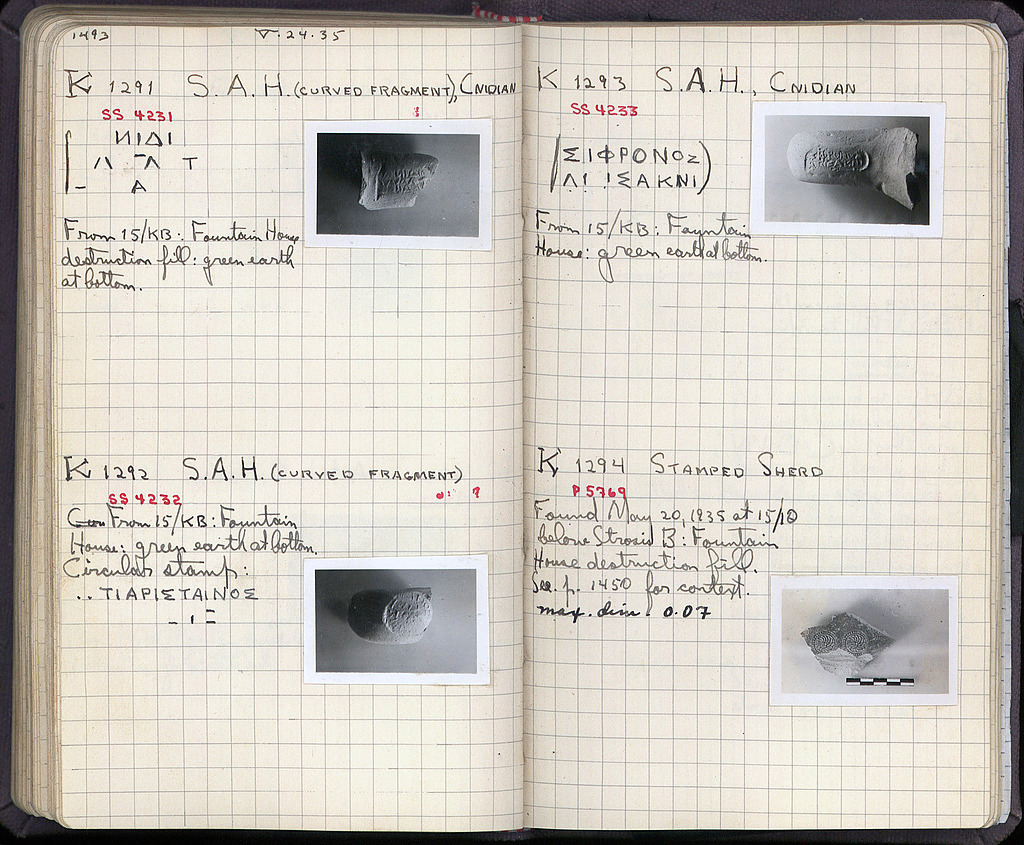 1493
V·24·35
K 1291 S.A.H. (CURVED FRAGMENT), CNIDIAN
SS 4231
ИΙΔΙ
Λ ΓΛ Τ
– Α
From 15/ΚΒ: Fountain House
destruction fill: green earth
at bottom.
K 1292 S.A.H. (CURVED FRAGMENT)
SS 4232
From 15/ΚΒ: Fountain
House: green earth at bottom.
Circular stamp:
..ΤΙΑΡΙΣΤΑΙΝΟΣ
K 1293 S.A.H., CNIDIAN
SS 4233
ΣΙΦΡΟΝΟΣ
ΛΙ ΙΣΑΚΝΙ
From 15/ΚΒ: Fountain
House: green earth at bottom.
K 1294 STAMPED SHERD
P 5769
Found May 20, 1935 at 15/
below Strosis B: Fountain
House destruction fill.
See p. 1450 for context.
max. dim. 0.07